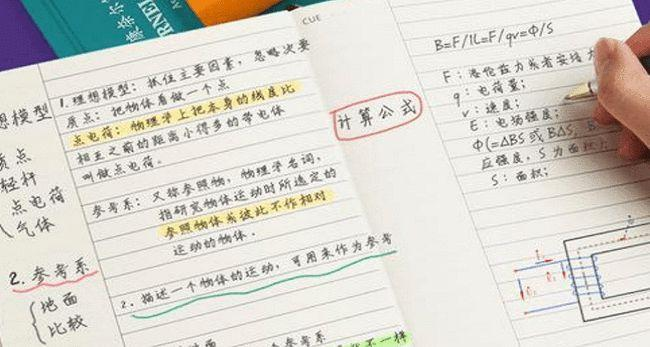 CUE
想模型
质点
轻杆
点电荷
气体
2. 参考系
地面
比较
1. 理想模型: 抓住主要因素, 忽略次要
质点: 把物体看做一个点
点电荷: 物理学上把本身的线度比
相互之前的距离小得多的带电体
叫做点电荷。
参考系: 又称参照物, 物理学名词,
指研究物体运动时所选定的
参照物体或彼此不作相对
运动的物体.
2. 描述一个物体的运动, 可用来作为参考
参考系
不一样
计算公式
B=F/IL=F/qv=Φ/S
F: 洛伦兹力或者安培力
q: 电荷量;
v: 速度;
E: 电场强度;
Φ(=ΔBS 或 BΔS, B
应强度, S 为面积)
S: 面积;